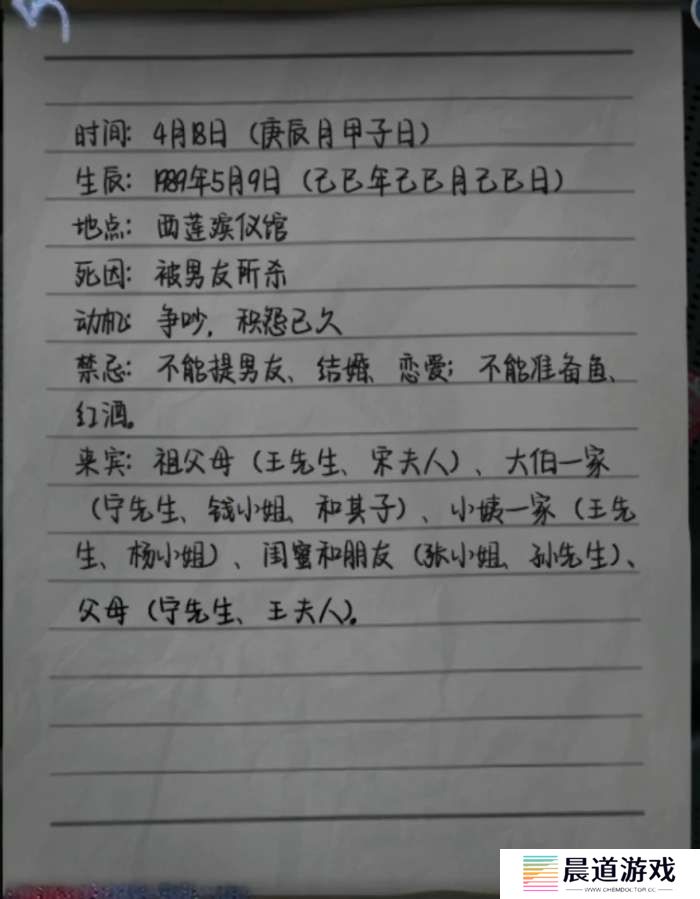 时间：4月18日（庚辰月甲子日）
生辰：1989年5月9日（己巳年己巳月己巳日）
地点：西莲殡仪馆
死因：被男友所杀
动机：争吵，积怨已久
禁忌：不能提男友、结婚、恋爱；不能准备鱼、
红酒。
来宾：祖父母（王先生、宋夫人）、大伯一家
（宁先生、钱小姐、和其子）、小姨一家（王先
生、杨小姐）、闺蜜和朋友（张小姐、孙先生）、
父母（宁先生、王夫人）。
晨道游戏
WWW.CHEMDOCTOR.CC